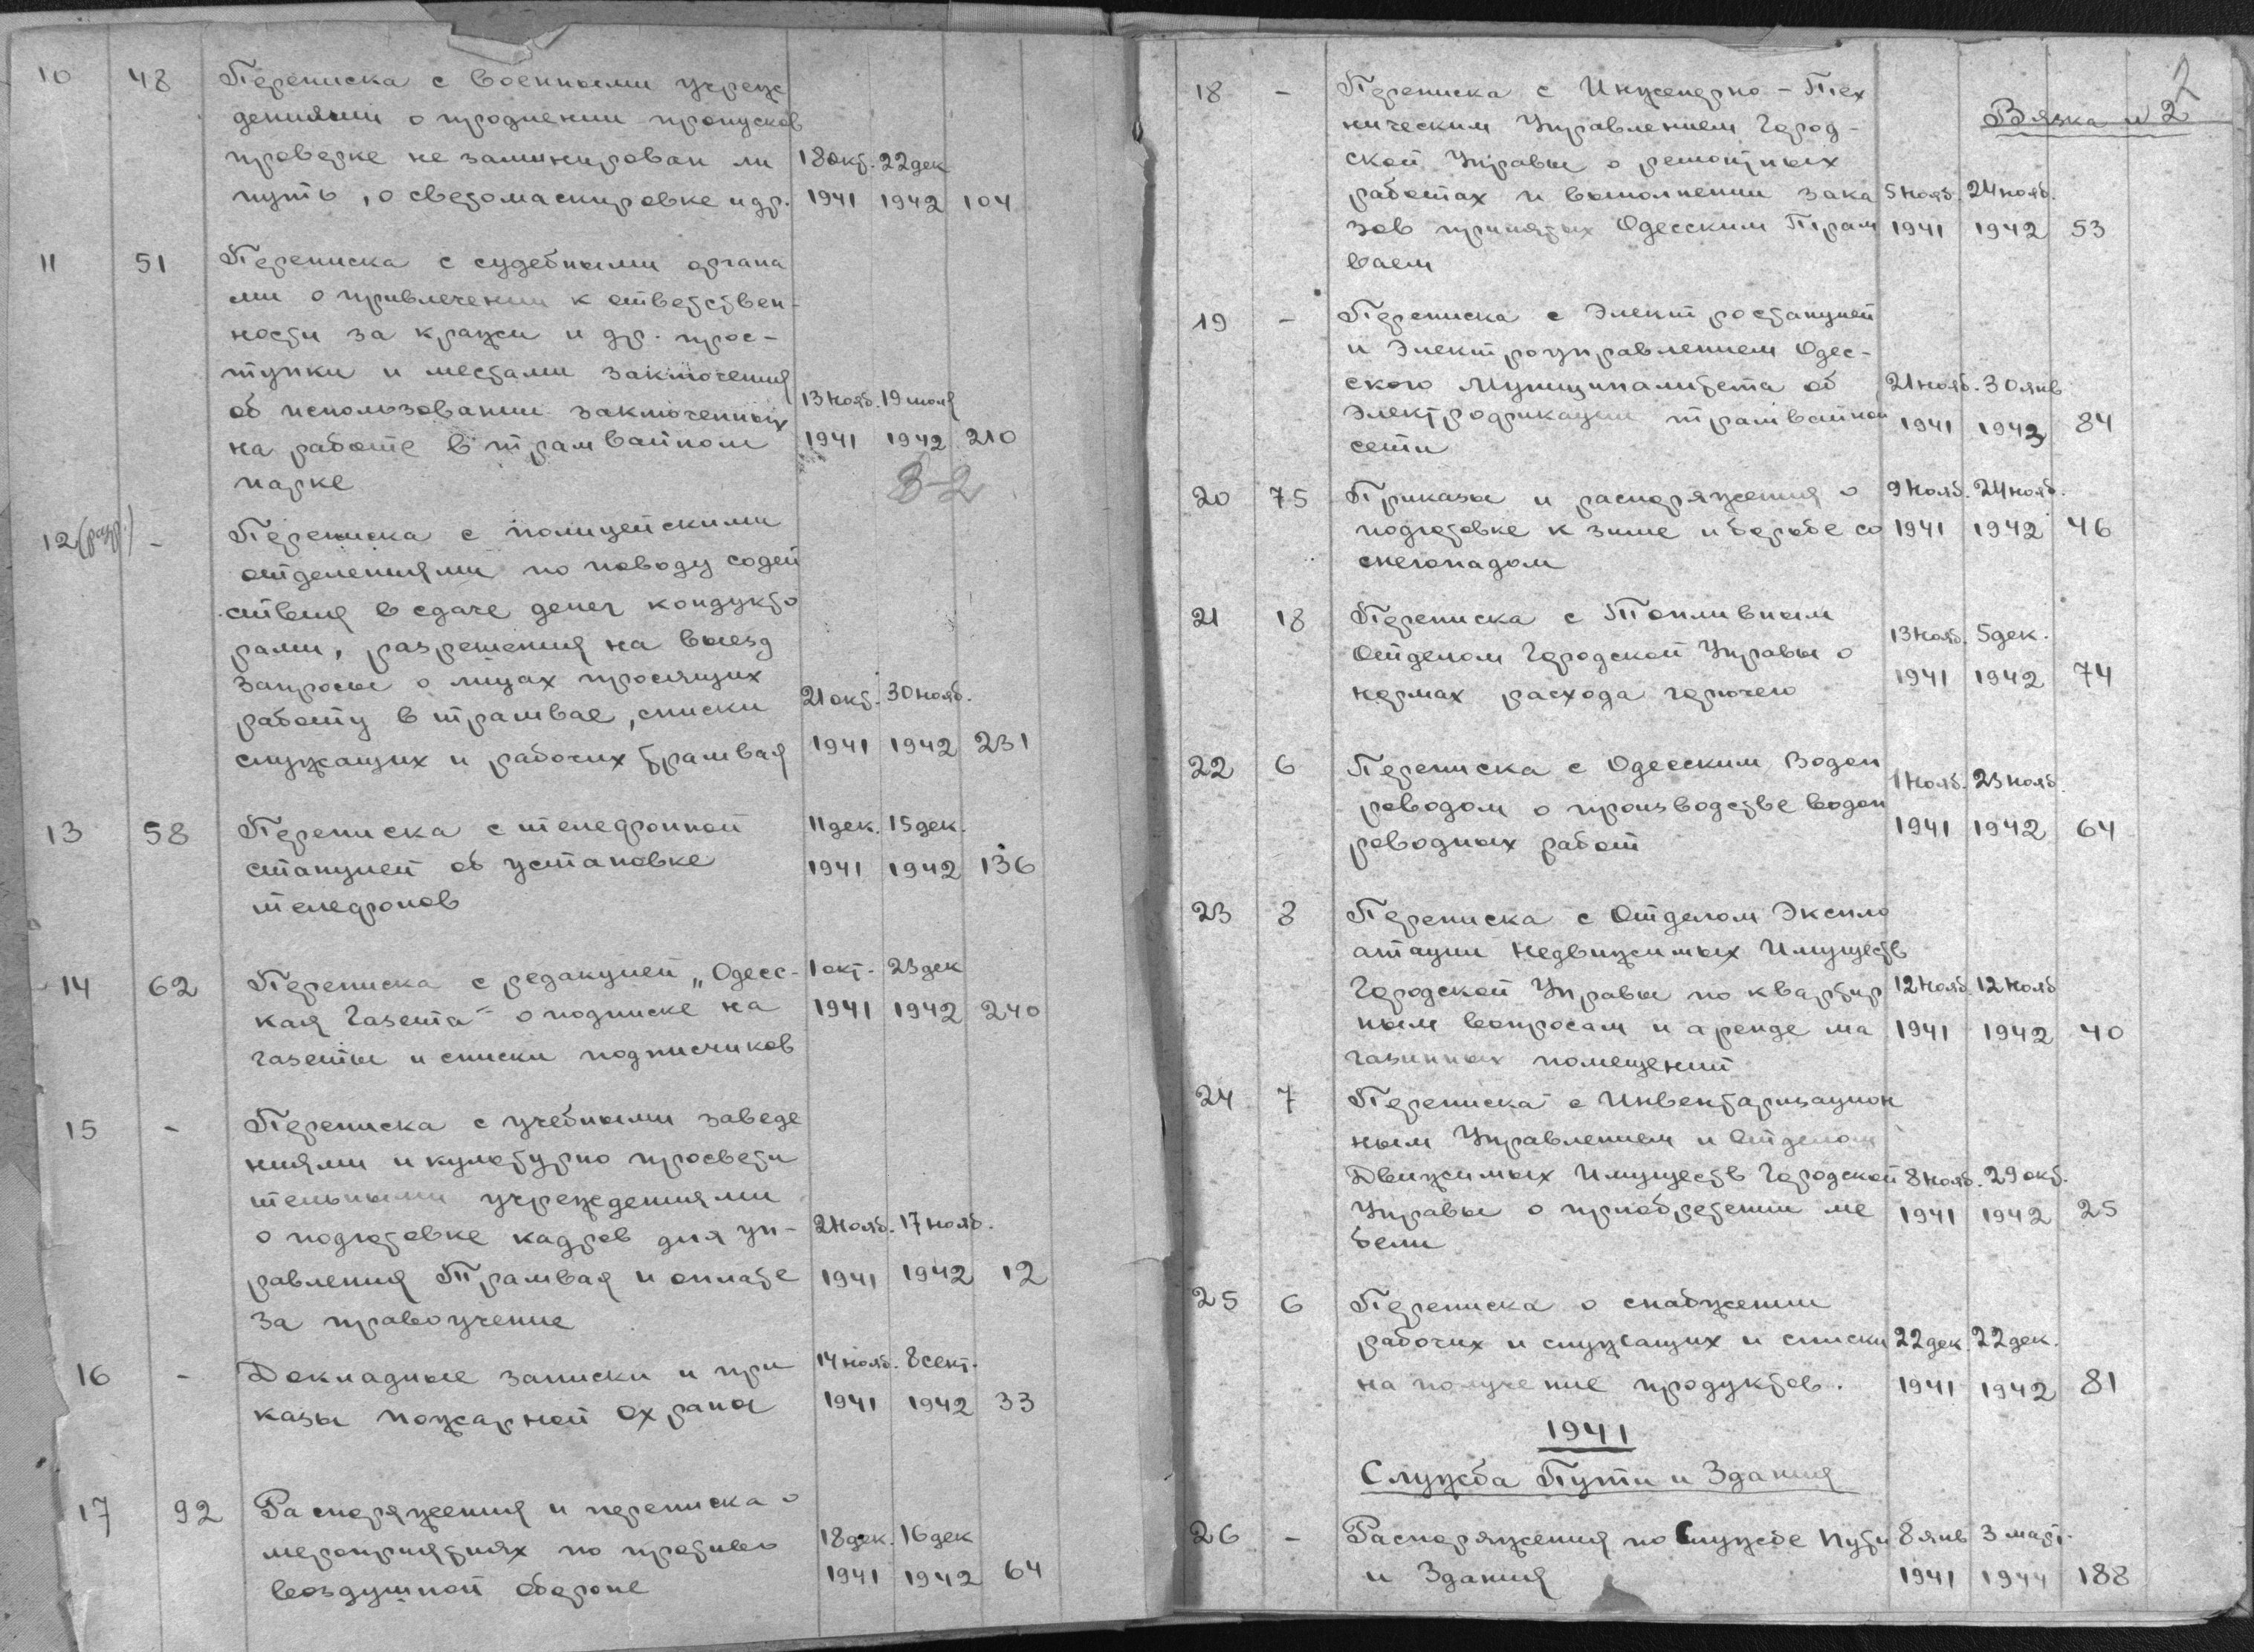 10 48 Переписка с военными учреж
дениями о продлении пропусков
проверке не заминирован ли 18 окт. 22 дек
путь, о светомаскировке и др. 1941 1942 104
11 51 Переписка с судебными органа
ми о привлечении к ответствен-
ности за кражи и др. прос-
тупки и местами заключения
об использовании заключенных 13 нояб. 19 июля
на работе в трамвайном 1941 1942 210
парке 3-2
12 (разр.) - Переписка с полицейскими
отделениями по поводу содей
ствия в сдаче денег кондукто
рами, разрешения на выезд
запросы о лицах просящих
работу в трамвае, списки 21 окт. 30 нояб.
служащих и рабочих трамвая 1941 1942 231
13 58 Переписка с телефонной 11 дек. 15 дек.
станцией об установке 1941 1942 136
телефонов
14 62 Переписка с редакцией „Одесс- 1 окт. 23 дек
кая Газета" о подписке на 1941 1942 240
газеты и списки подписчиков
15 - Переписка с учебными заведе
ниями и культурно просвети
тельными учреждениями
о подготовке кадров для уп- 2 нояб. 17 нояб.
равления Трамвая и оплате 1941 1942 12
за правоучение
16 - Докладные записки и при 14 нояб. 8 сент.
казы пожарной охраны 1941 1942 33
17 92 Распоряжения и переписка о
мероприятиях по противо 18 дек. 16 дек
воздушной обороне 1941 1942 64
2
Вязка № 2
18 - Переписка с Инженерно-Тех
ническим Управлением Город-
ской Управы о ремонтных
работах и выполнении зака 5 нояб. 24 нояб.
зов принятых Одесским Трам 1941 1942 53
ваем
19 - Переписка с Электростанцией
и Электроуправлением Одес-
ского Муниципалитета об 21 нояб. 30 янв
электрофикации трамвайной 1941 1943 84
сети
20 75 Приказы и распоряжения о 9 нояб. 24 нояб.
подготовке к зиме и борьбе со 1941 1942 46
снегопадом
21 18 Переписка с Топливным
Отделом Городской Управы о 13 нояб. 5 дек.
нормах расхода горючего 1941 1942 74
22 6 Переписка с Одесским Водоп 1 нояб. 23 нояб.
роводом о производстве водоп
роводных работ 1941 1942 64
23 8 Переписка с Отделом Экспло
атации Недвижимых Имуществ
Городской Управы по квартир 12 нояб. 12 нояб
ным вопросам и аренде ма 1941 1942 40
газинных помещений
24 7 Переписка с Инвентаризацион
ным Управлением и Отделом
Движимых Имуществ Городской 8 нояб. 29 окт.
Управы о приобретении ме 1941 1942 25
бели
25 6 Переписка о снабжении
рабочих и служащих и списки 22 дек. 22 дек.
на получение продуктов. 1941 1942 81
1941
Служба Пути и Здания
26 - Распоряжения по Службе Пути 8 янв 3 март.
и Здания 1941 1944 188